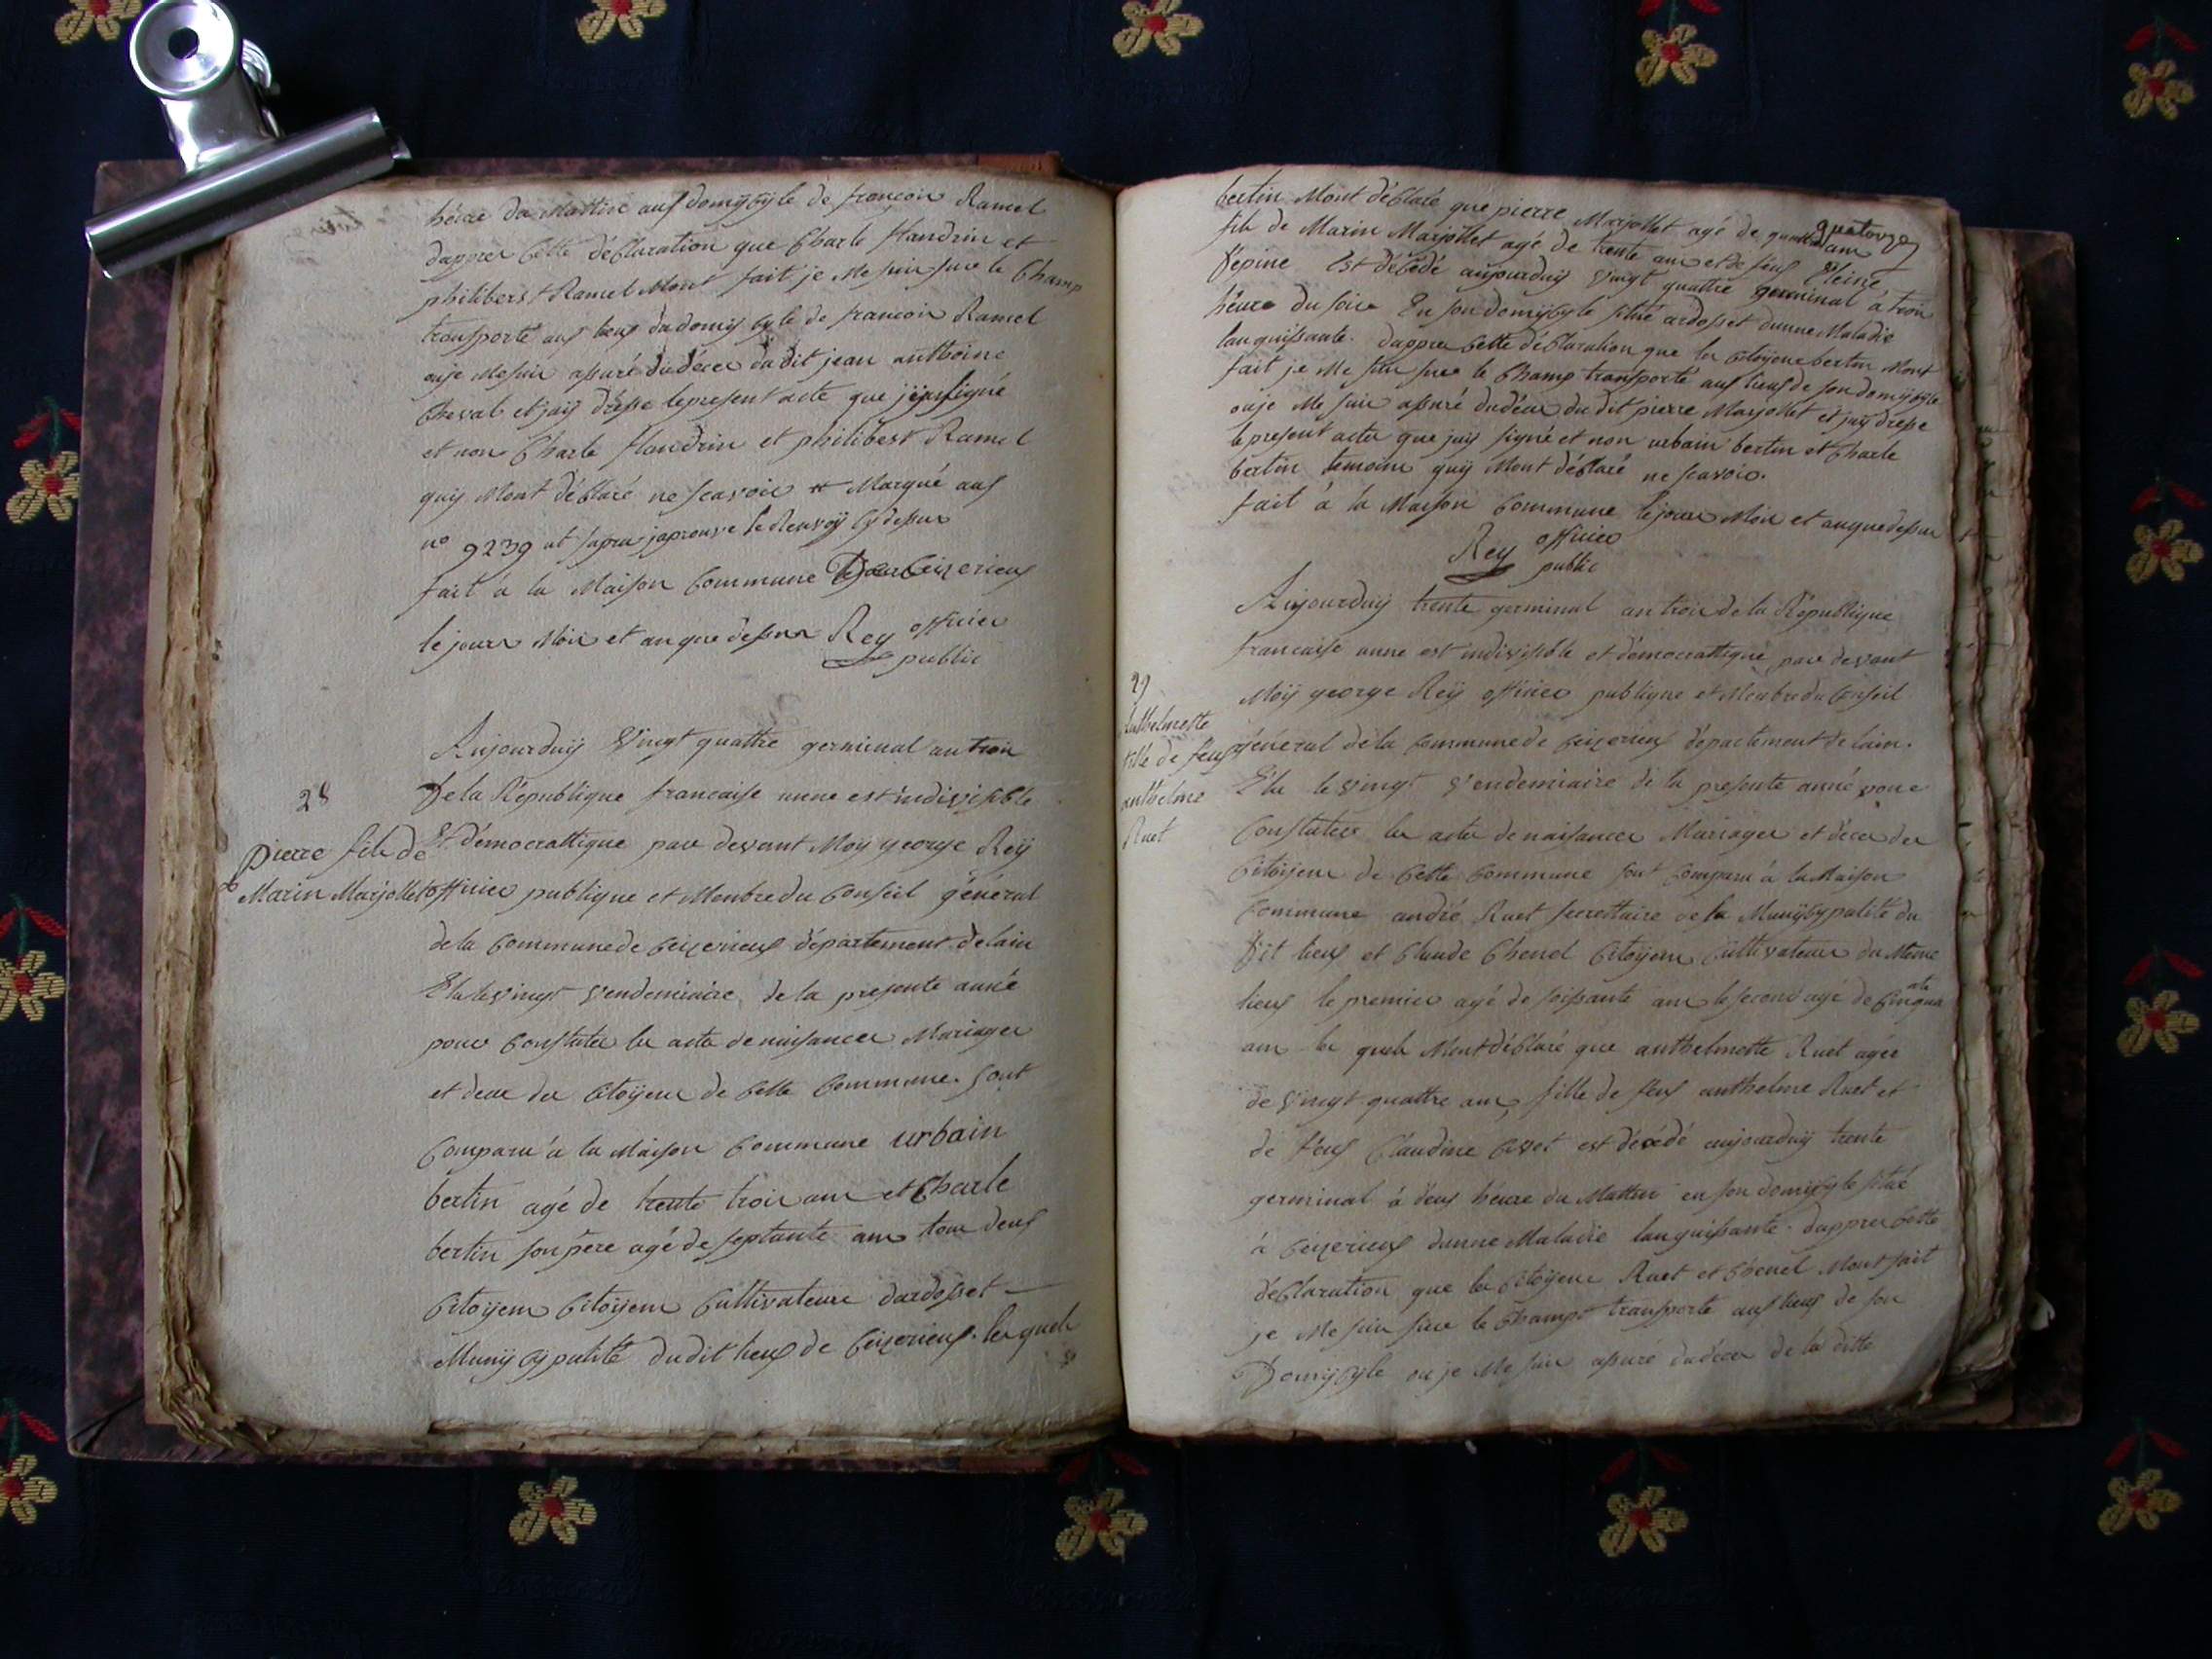 héure du Mattin aux domyçyle de françois Ramel
dapprer Cette déClaration que Charle flandrin et
philibert Ramel Mont fait je Me suis sur le Champ
transporté aux lieux du domyçyle de francois Ramel
ouje Me suis assuré du décer du dit jean anthoine
Cheval et jaij dresse lepresent acte que jeij signé
et non Charle flandrin et philibert Ramel
quij Mont déClaré ne scavoir Marqué aux
n° 9239 japrouve le Renvoÿ Cÿdessus
fait à la Maison Commune Ceizerieux
le jours Mois et an que dessus Rey officier
public
Aujourduij Vingt quattre germinal an trois
De la République francaise unne est indivisible
28
Et démocrattique par devant Moÿ george Reÿ
pierre fils de
Marin Marjollet
officier publique et Membre du Conseil général
de la Commune de Ceizerieux département de lain
Elu le Vingt Vendemiaire de la presente année
pour Constater les actes de naisances Mariages
et deces des Citoÿens de Cette Commune. sont
Comparu à la Maison Commune urbain
bertin agé de trente trois ans et Charle
bertin son père agé de septante ans tous deux
Citoÿens Citoÿens Cultivateurs dardosset
Munijçypalité du dit lieux de Ceizerieux. les quels
bertin Mont déClaré que pierre Marjollet agé de quatorze ans
fils de Marin Marjollet agé de trente ans et de feus Pleine
Dépine Est décédé aujourduij Vingt quattre germinal à trois
héures du soire En son domijçyle situé ardosset dunne Maladie
languissante. dapprer Cette déClaration que les Citoÿens bertin Mont
fait je Me suis sur le Champ transporté aux lieux de son domijçyle
ouje Me suis assuré du décer du dit pierre Marjollet et jaij dresse
le present actes que jaij signé et non urbain bertin et Charle
bertin temoins quij Mont déClaré ne scavoir.
fait à la Maison Commune le jour Mois et anquedessus
Rey officier
public
Aujourduij trente germinal an trois de la République
francaise unne est indivisible et démocrattique par devant
Moÿ george Reÿ officier publique et Membre du Conseil
29
anthelmette
fille de feux
anthelme
Ruet
général de la Commune de Ceizerieux département de lain.
Elu le Vingt Vendemiaire de la presente année pour
Constater les actes de naisances Mariages et décer des
Citoÿens de Cette Commune sont Comparu à la Maison
Commune andré Ruet secrettaire de la Munijçypalité du
Dit lieux et Claude Chenel Citoÿens Cultivateurs du Meme
lieux le premier agé de soissante ans le second agé de Cinquante
ans les quels Mont déClaré que anthelmette Ruet agée
de Vingt quattre ans fille de feux anthelme Ruet et
de feus Claudine est décédé aujourduij trente
germinal à deux héures du Mattin en son domijçyle situé
à Ceizerieux dunne Maladie languissante. dapprer Cette
déClaration que les Citoÿens Ruet et Chenel Mont fait
je Me suis sur le Champ transporté aux lieux de son
Domijçyle ou je Me suis assuré du décer de la ditte